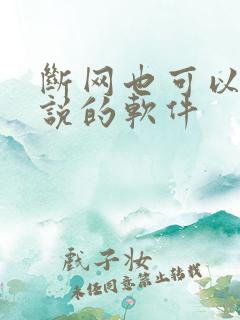 斷网也可以
説的軟件
戲子妝
未经同意禁止转载